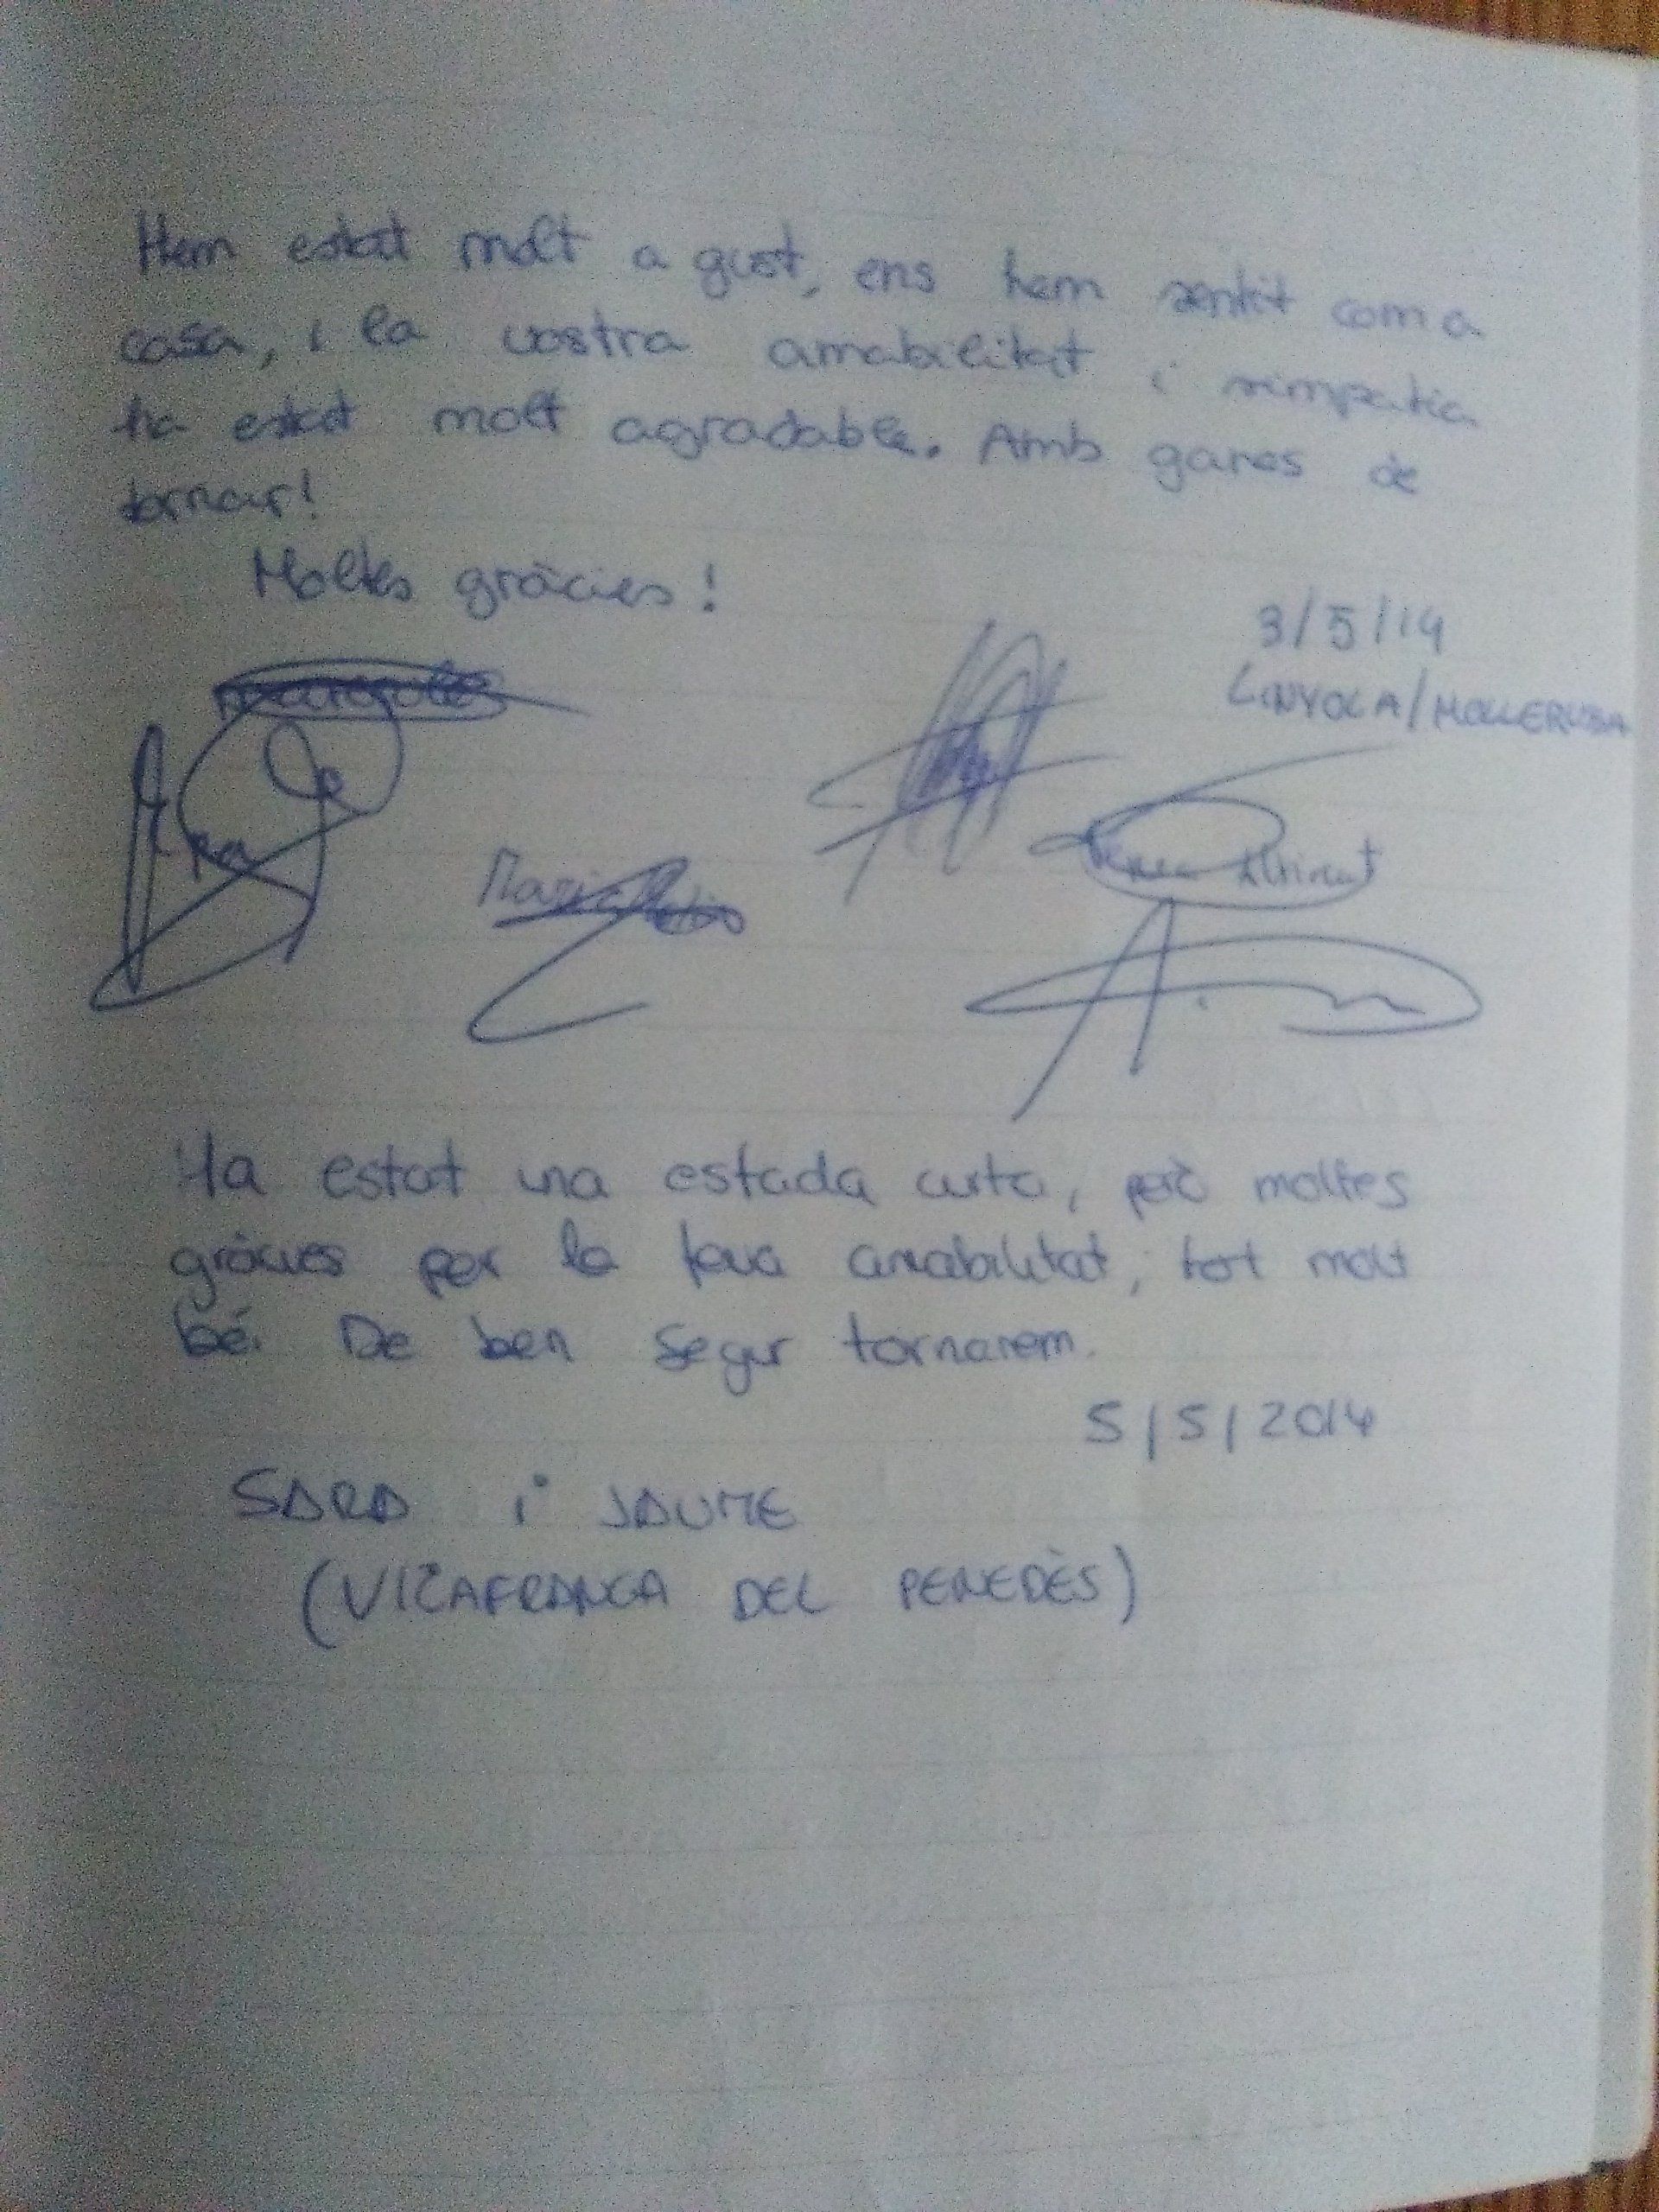 Hem estat molt a gust, ens hem sentit com a
casa, i la vostra amabilitat i simpatia
ha estat molt agradable. Amb ganes de
tornar!
Moltes gràcies!
3/5/14
LINYOLA/MOLLERUSSA
Maria
Ha estat una estada curta, però moltes
gràcies per la teva amabilitat, tot molt
bé. De ben segur tornarem.
5/5/2014
SARA i JAUME
(VILAFRANCA DEL PENEDÈS)